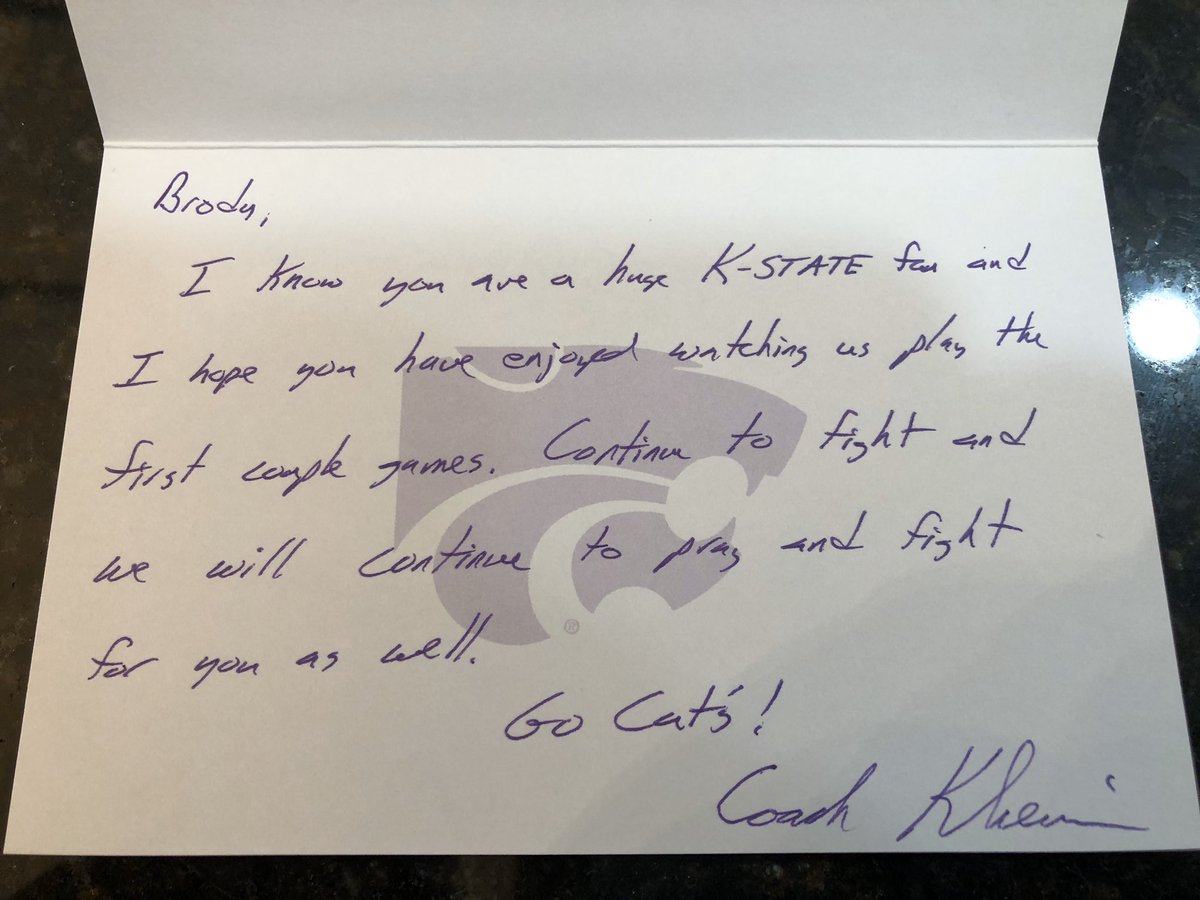 Brody,
I know you are a huge K-STATE fan and
I hope you have enjoyed watching us play the
first couple games. Continue to fight and
we will continue to pray and fight
for you as well.
®
Go Cat's!
Coach Klieman